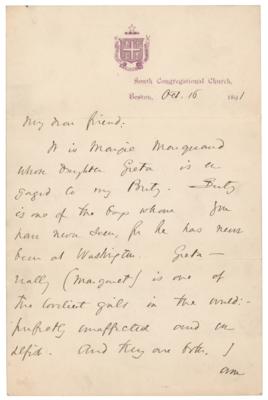 South Congregational Church,
Boston, Oct. 16 1891
My dear friend:
It is Margie Marquand
whose daughter Greta is en
gaged to my Berty. Berty
is one of the boys whom you
have never seen, for he has never
been at Washington. Greta —
really (Margaret) is one of
the loveliest girls in the world:
perfectly unaffected and un
selfish. And they are both, I
am